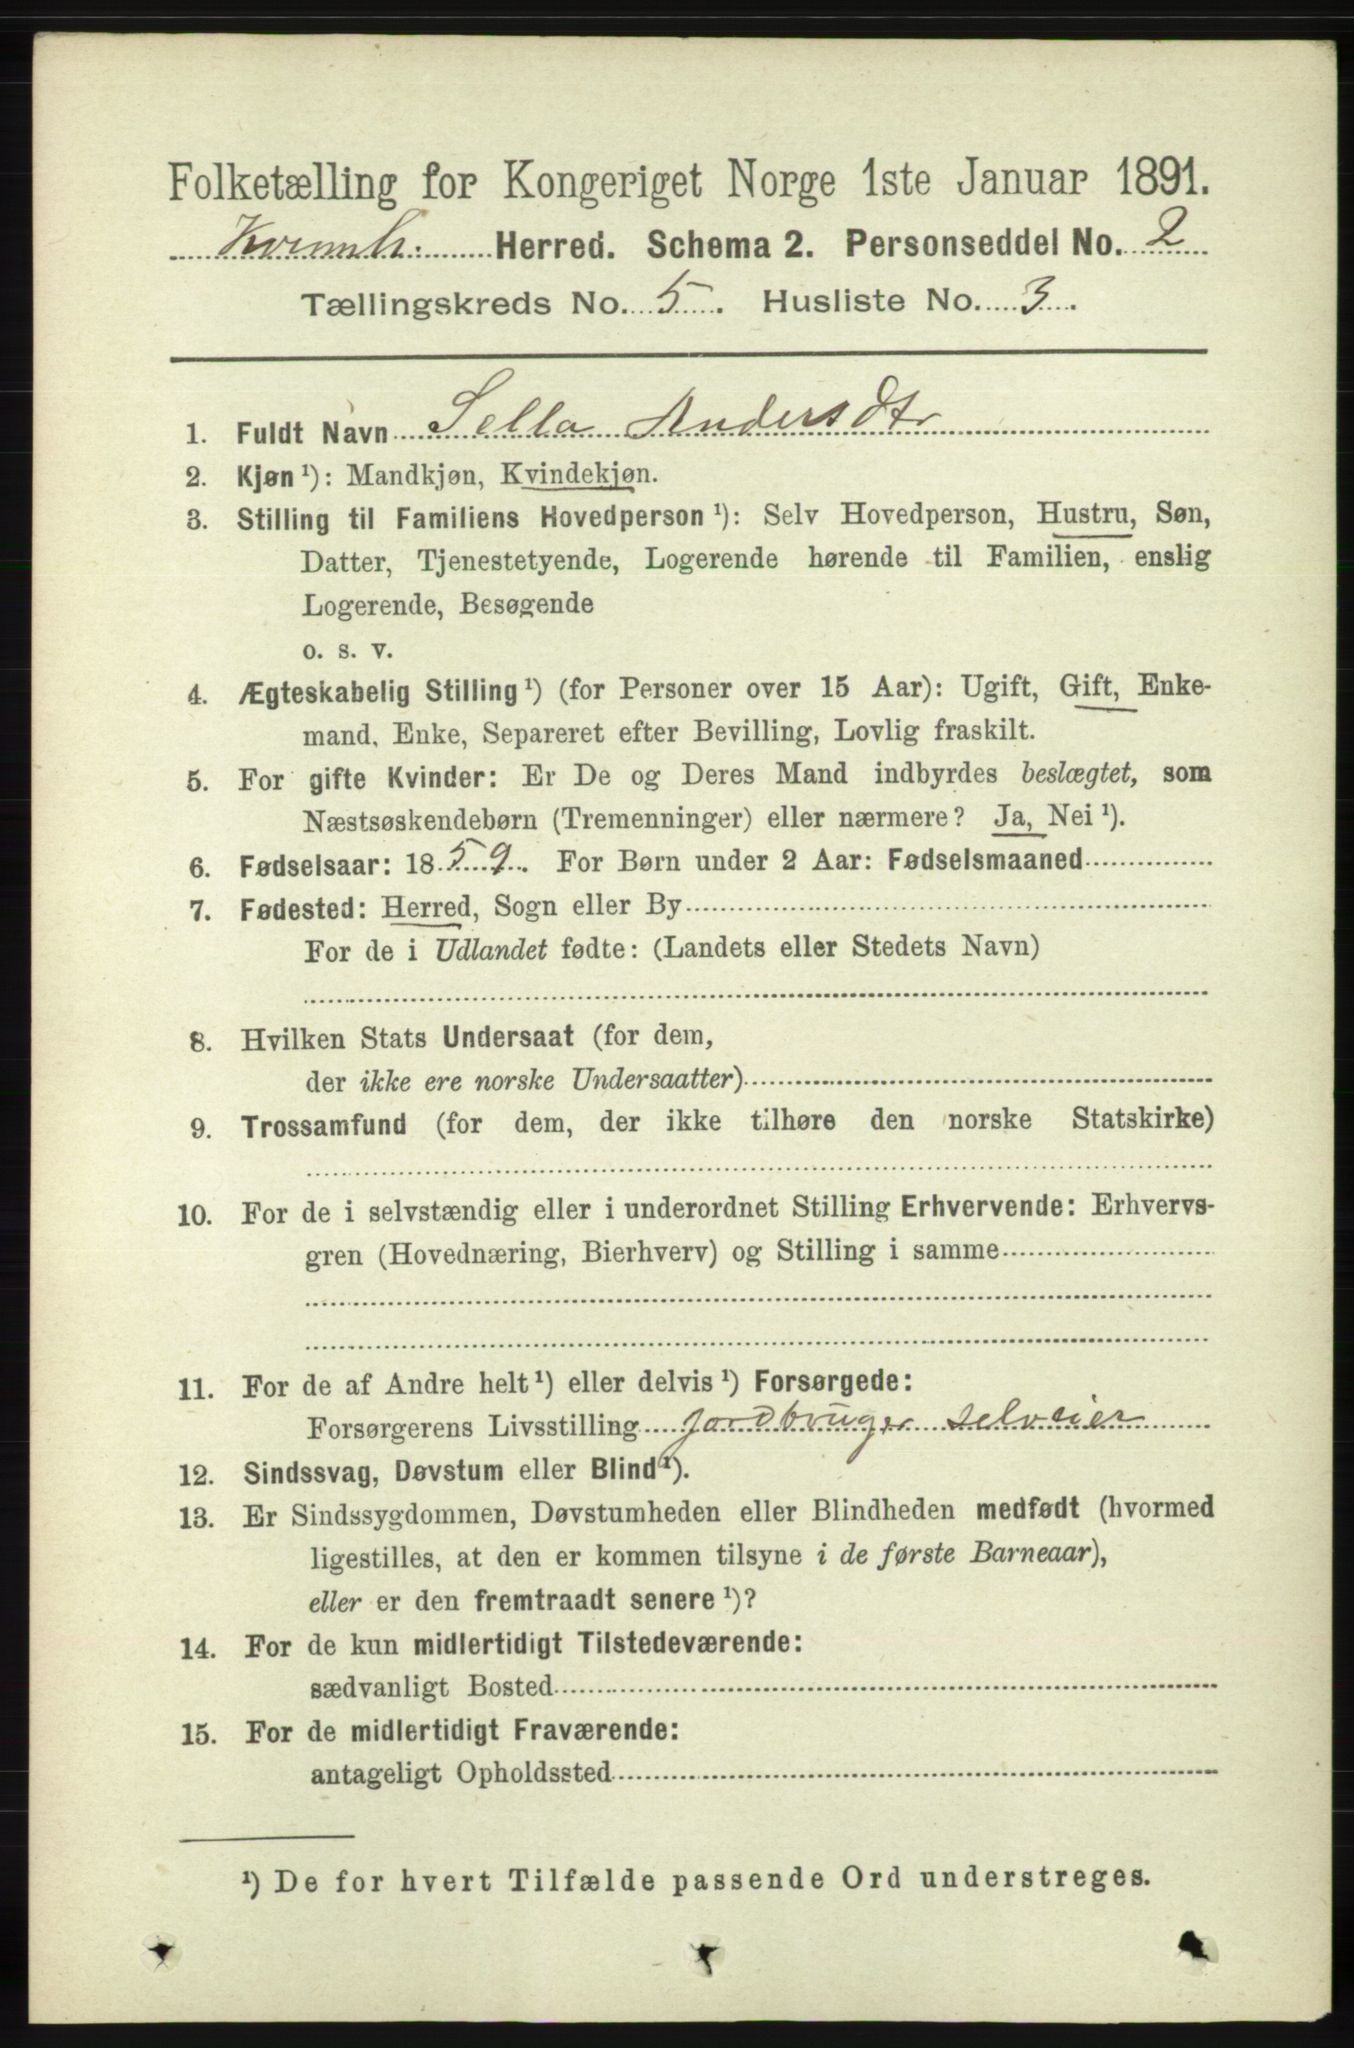 Folketælling for Kongeriget Norge 1ste Januar 1891.
Kvinnh: Herred. Schema 2. Personseddel No. 2
Tællingskreds No. 5. Husliste No. 3.
1. Fuldt Navn Sella Andersdtr
2. Kjøn ¹): Mandkjøn, Kvindekjøn.
3. Stilling til Familiens Hovedperson ¹): Selv Hovedperson, Hustru, Søn,
Datter, Tjenestetyende, Logerende hørende til Familien, enslig
Logerende, Besøgende
o. s. v.
4. Ægteskabelig Stilling ¹) (for Personer over 15 Aar): Ugift, Gift, Enke-
mand, Enke, Separeret efter Bevilling, Lovlig fraskilt.
5. For gifte Kvinder: Er De og Deres Mand indbyrdes beslægtet, som
Næstsøskendebørn (Tremenninger) eller nærmere? Ja, Nei ¹).
6. Fødselsaar: 1859. For Børn under 2 Aar: Fødselsmaaned
7. Fødested: Herred, Sogn eller By
For de i Udlandet fødte: (Landets eller Stedets Navn)
8. Hvilken Stats Undersaat (for dem,
der ikke ere norske Undersaatter)
9. Trossamfund (for dem, der ikke tilhøre den norske Statskirke)
10. For de i selvstændig eller i underordnet Stilling Erhvervende: Erhvervs-
gren (Hovednæring, Bierhverv) og Stilling i samme
11. For de af Andre helt ¹) eller delvis ¹) Forsørgede:
Forsørgerens Livsstilling jordbruger selveier
12. Sindssvag, Døvstum eller Blind ¹).
13. Er Sindssygdommen, Døvstumheden eller Blindheden medfødt (hvormed
ligestilles, at den er kommen tilsyne i de første Barneaar),
eller er den fremtraadt senere ¹)?
14. For de kun midlertidigt Tilstedeværende:
sædvanligt Bosted
15. For de midlertidigt Fraværende:
antageligt Opholdssted
¹) De for hvert Tilfælde passende Ord understreges.